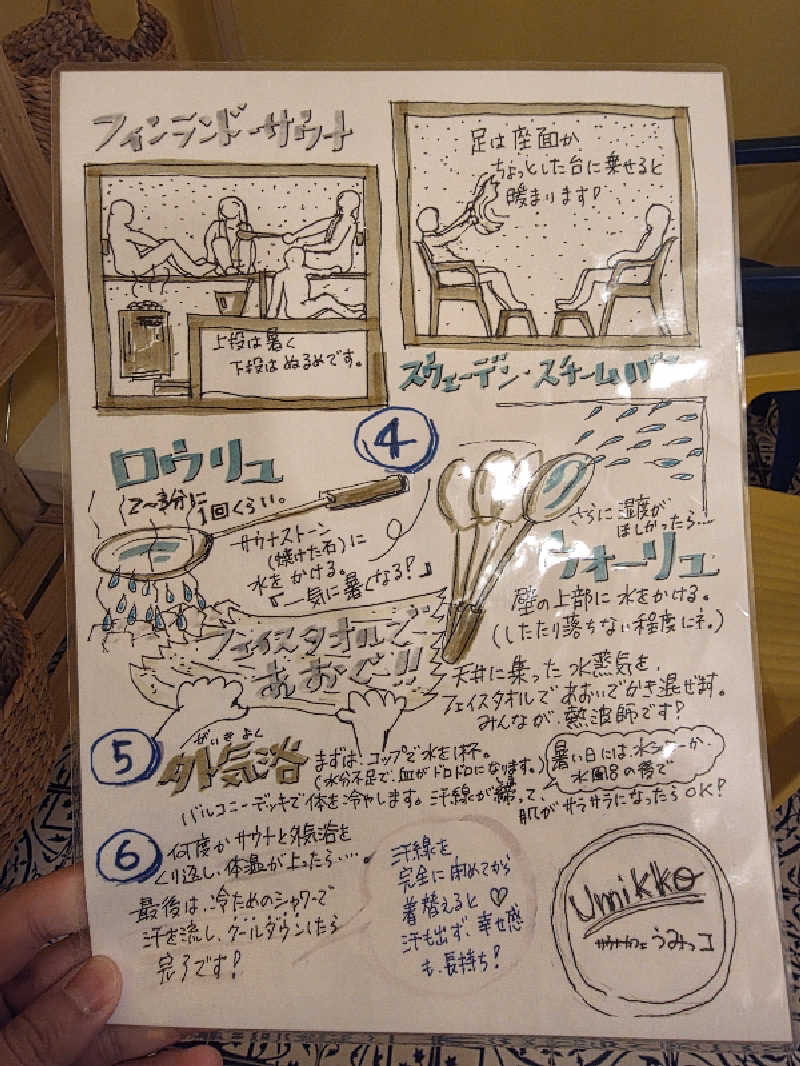 フィンランドサウナ
上段は暑く
下段はぬるめです。
足は座面か
ちょっとした台に乗せると
暖まります!
スウェーデン・スチームバス
④
ロウリュ
2〜3分に
1回くらい。
サウナストーン
(焼けた石)に
水をかける。
『一気に暑くなる?』
フェイスタオルで
あおぐ!!
さらに湿度が
ほしかったら…
ウォーリュ
壁の上部に水をかける。
(したたり落ちない程度にネ。)
天井に集った水蒸気を、
フェイスタオルであおいでかき混ぜます。
みんなが、熱波師です?
⑤
がいきよく
外気浴
まずは、コップで水を1杯。
(水分不足で、血がドロドロになります。)
バルコニーデッキで体を冷やします。汗線が締って、
肌がサラサラになったらOK?
暑い日には水シャワーか、
水風呂の後で
⑥
何度かサウナと外気浴を
くり返し、体温が上ったら…
最後は、冷ためのシャワーで
汗を流し、クールダウンしたら
完了です?
汗線を
完全に閉めてから
着替えると♡
汗も出ず、幸せ感
も、長持ち!
Umikko
サウナカフェ うみっコ